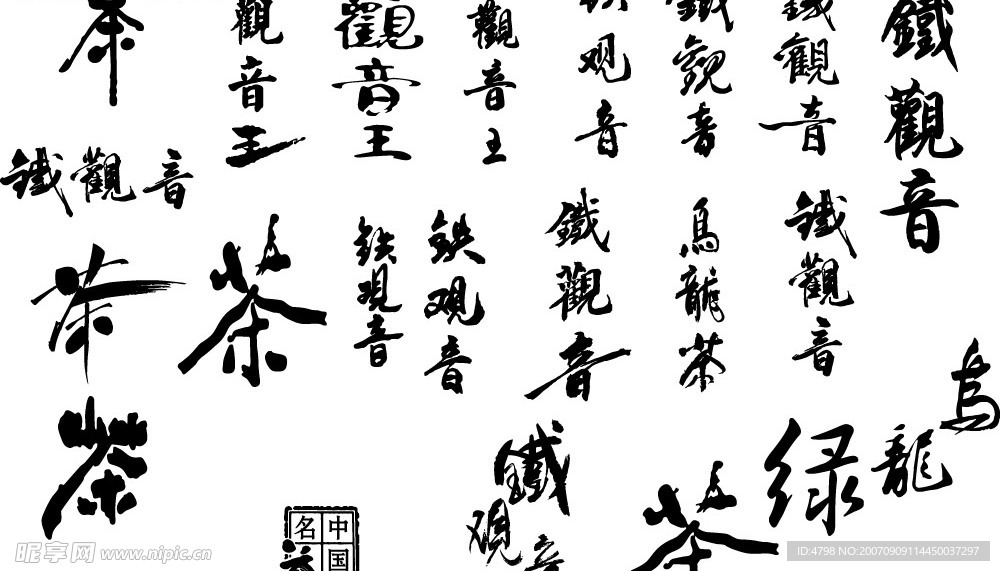 茶
觀音王
觀音王
觀音王
铁观音
鐵觀音
鐵觀音
鐵觀音
鐵觀音
茶
茶
铁观音
铁观音
鐵觀音
烏龍茶
鐵觀音
烏龍
茶
中国名茶
鐵觀音
茶
绿
昵享网 www.nipic.cn
ID:4798 NO:20070909114450037297